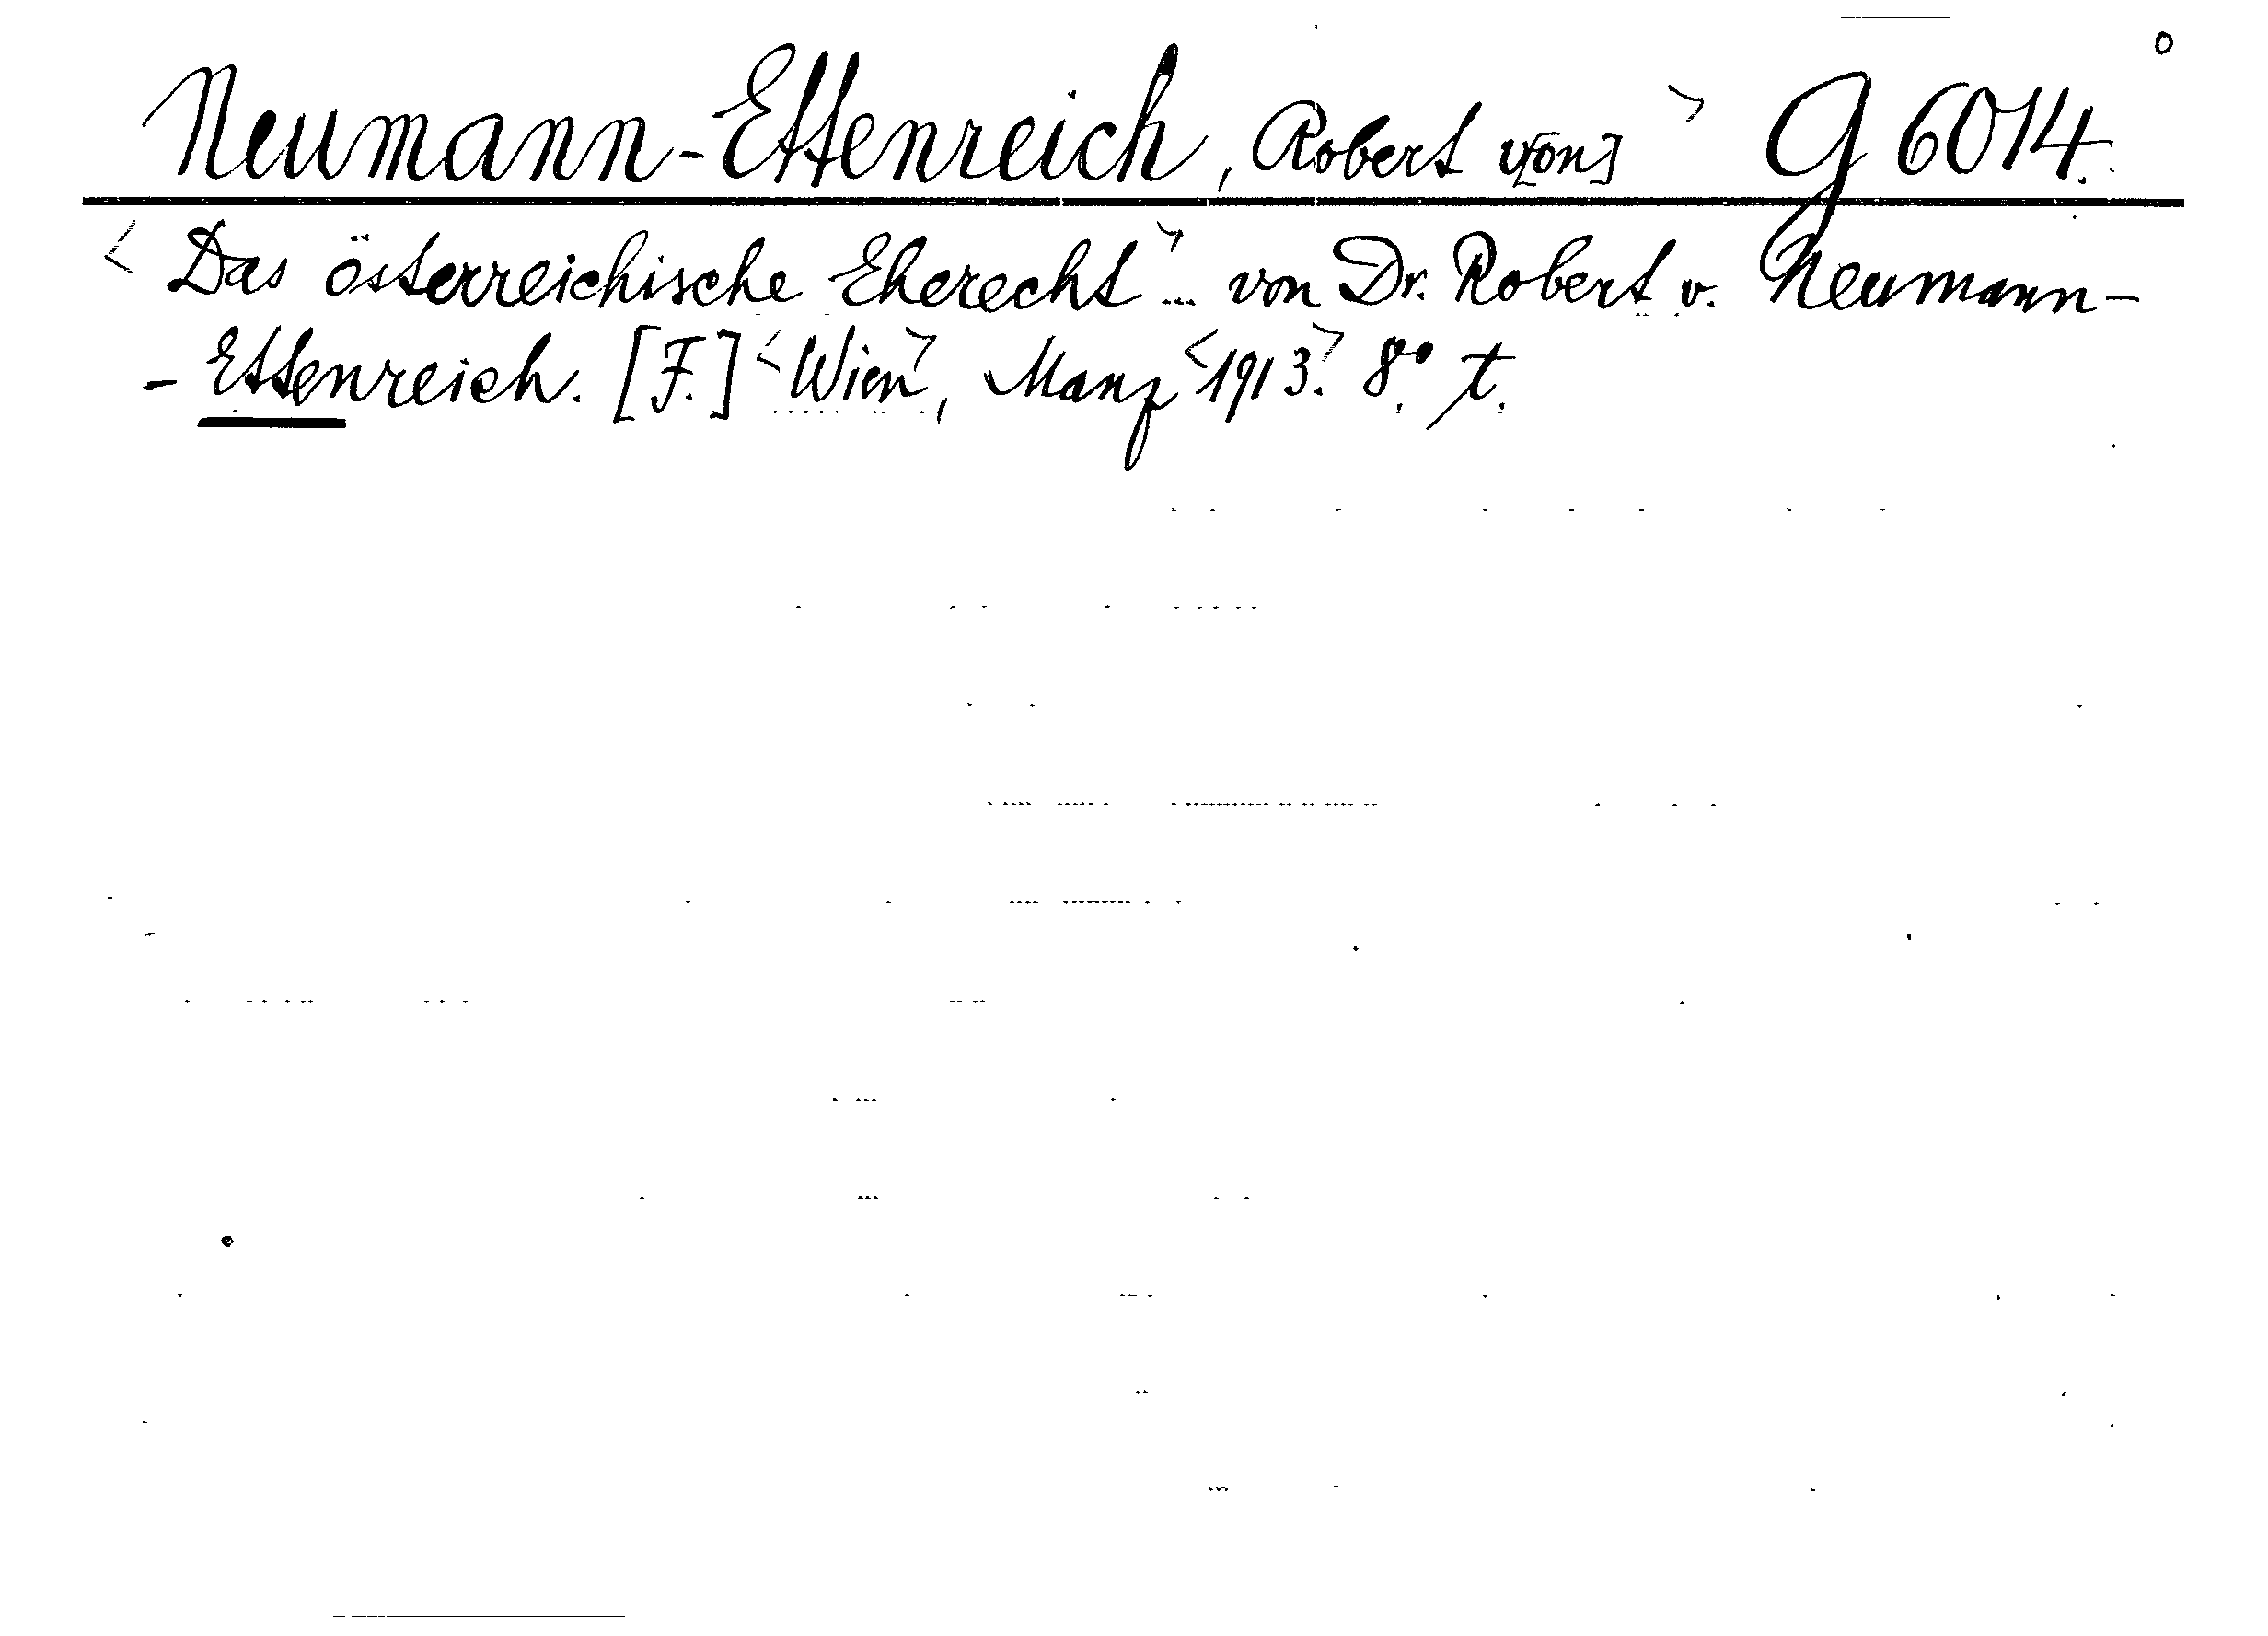 Neumann-Ettenreich, Robert v[on] > G 6014.
< Das österreichische Eherecht > ... von Dr. Robert v. Neumann-
- Ettenreich. [F.] < Wien >, Manz < 1913. > 8.° t.